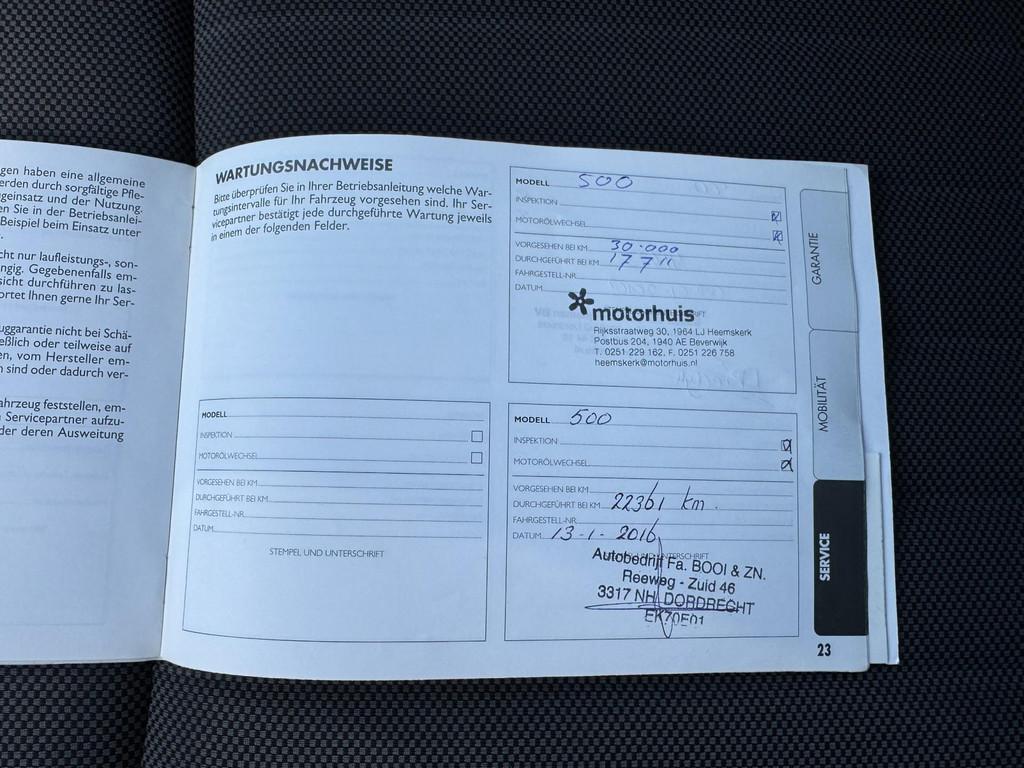 gen haben eine allgemeine
erden durch sorgfältige Pfle-
geinsatz und der Nutzung.
en Sie in der Betriebsanlei-
Beispiel beim Einsatz unter
cht nur laufleistungs-, son-
ngig. Gegebenenfalls em-
sicht durchführen zu las-
ortet Ihnen gerne Ihr Ser-
uggarantie nicht bei Schä-
eßlich oder teilweise auf
en, vom Hersteller em-
n sind oder dadurch ver-
ahrzeug feststellen, em-
n Servicepartner aufzu-
der deren Ausweitung
WARTUNGSNACHWEISE
Bitte überprüfen Sie in Ihrer Betriebsanleitung welche War-
tungsintervalle für Ihr Fahrzeug vorgesehen sind. Ihr Ser-
vicepartner bestätigt jede durchgeführte Wartung jeweils
in einem der folgenden Felder.
MODELL
INSPEKTION
MOTORÖLWECHSEL
VORGESEHEN BEI KM
DURCHGEFÜHRT BEI KM
FAHRGESTELL-NR.
DATUM
STEMPEL UND UNTERSCHRIFT
MODELL 500
INSPEKTION
MOTORÖLWECHSEL
VORGESEHEN BEI KM 30.000
DURCHGEFÜHRT BEI KM 17711
FAHRGESTELL-NR.
DATUM
motorhuis
Rijksstraatweg 30, 1964 LJ Heemskerk
Postbus 204, 1940 AE Beverwijk
T. 0251 229 162, F. 0251 226 758
heemskerk@motorhuis.nl
MODELL 500
INSPEKTION
MOTORÖLWECHSEL
VORGESEHEN BEI KM
DURCHGEFÜHRT BEI KM 22361 km.
FAHRGESTELL-NR.
DATUM 13-1-2016
Autobedrijf Fa. BOOI & ZN.
Reeweg - Zuid 46
3317 NH DORDRECHT
EK70E01
GARANTIE
MOBILITÄT
SERVICE
23